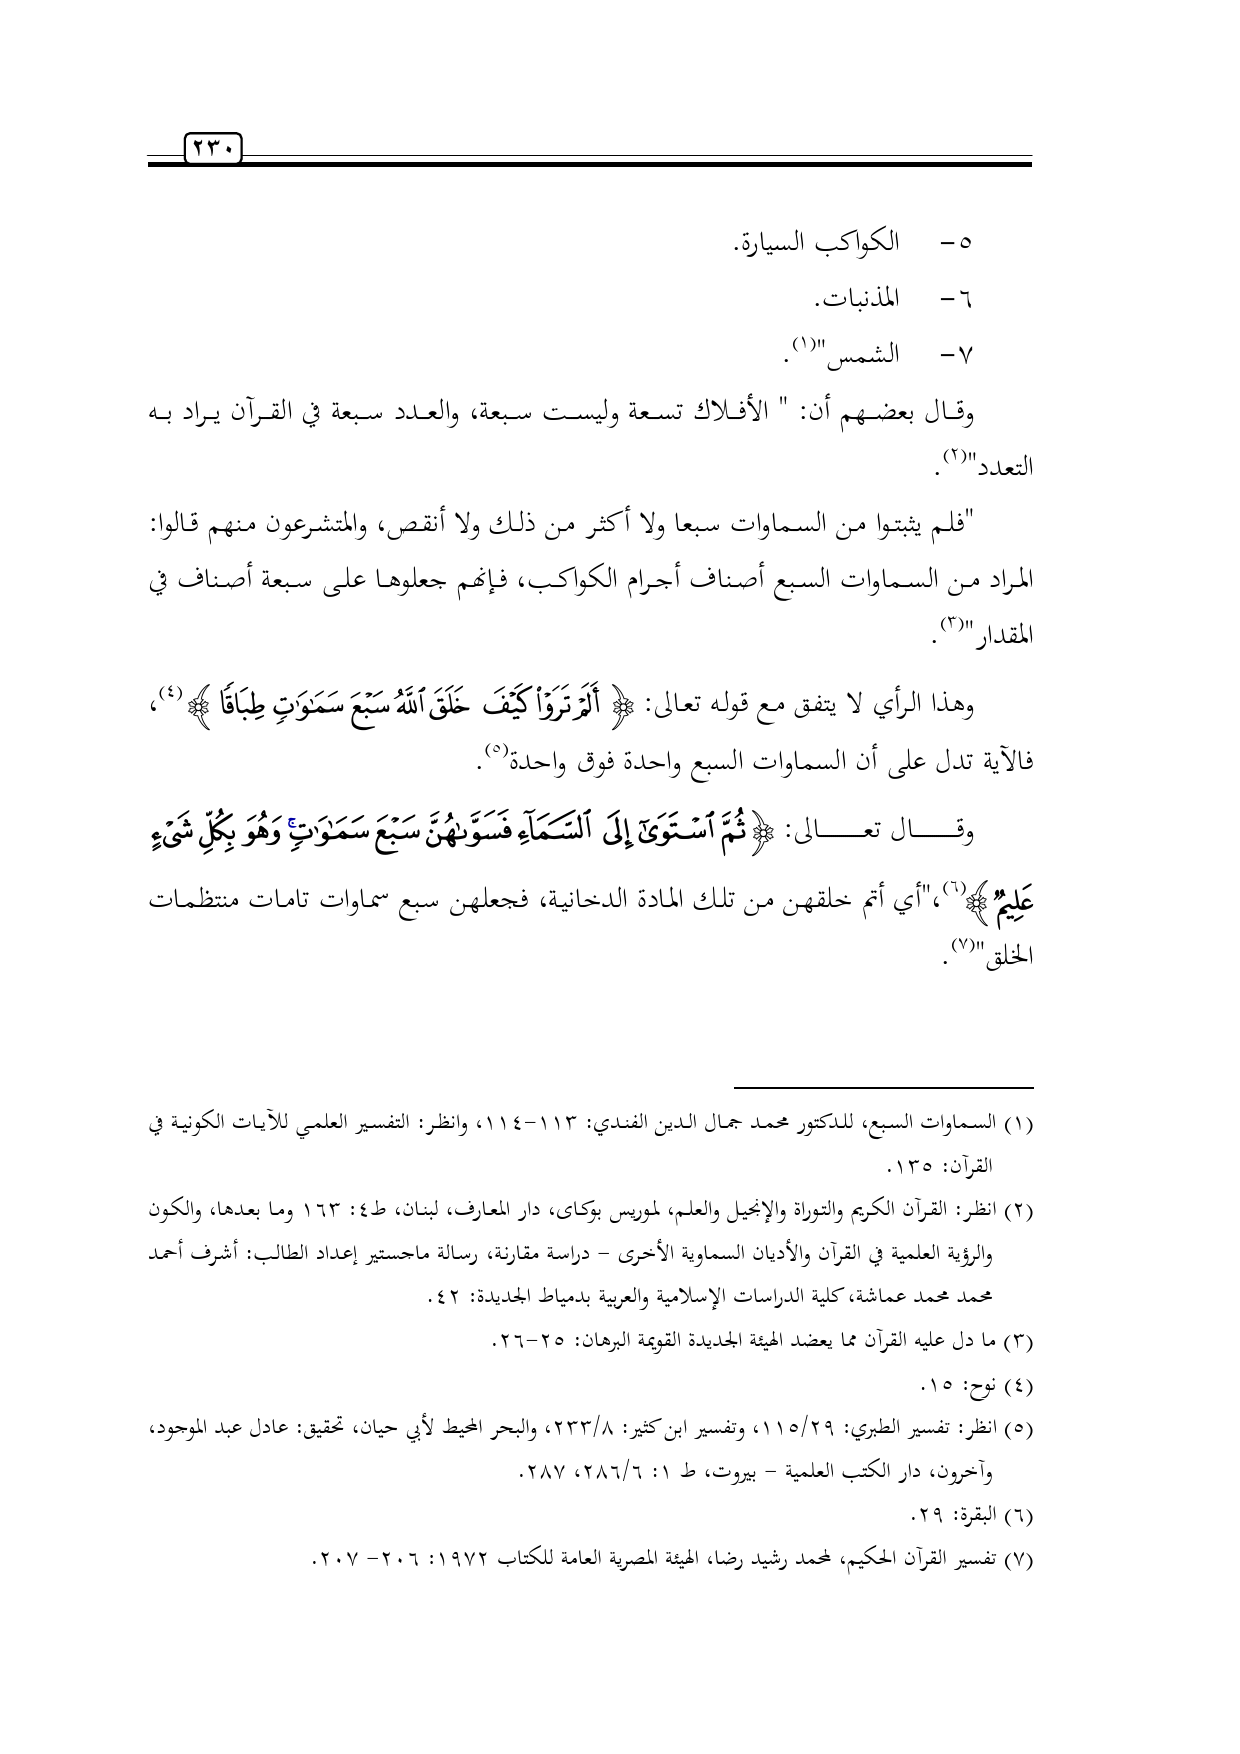 ٢٣٠
٥- الكواكب السيارة.
٦- المذنبات.
٧- الشمس"(١).
وقال بعضهم أن: " الأفلاك تسعة وليست سبعة، والعدد سبعة في القرآن يراد به
التعدد"(٢).
"فلم يثبتوا من السماوات سبعا ولا أكثر من ذلك ولا أنقص، والمتشرعون منهم قالوا:
المراد من السماوات السبع أصناف أجرام الكواكب، فإنهم جعلوها على سبعة أصناف في
المقدار"(٣).
وهذا الرأي لا يتفق مع قوله تعالى: ﴿ أَلَمۡ تَرَوۡاْ كَيۡفَ خَلَقَ ٱللَّهُ سَبۡعَ سَمَٰوَٰتٖ طِبَاقٗا ﴾(٤)،
فالآية تدل على أن السماوات السبع واحدة فوق واحدة(٥).
وقال تعالى: ﴿ ثُمَّ ٱسۡتَوَىٰٓ إِلَى ٱلسَّمَآءِ فَسَوَّىٰهُنَّ سَبۡعَ سَمَٰوَٰتٖۚ وَهُوَ بِكُلِّ شَيۡءٍ
عَلِيمٞ ﴾(٦)،"أي أتم خلقهن من تلك المادة الدخانية، فجعلهن سبع سماوات تامات منتظمات
الخلق"(٧).
(١) السماوات السبع، للدكتور محمد جمال الدين الفندي: ١١٣-١١٤، وانظر: التفسير العلمي للآيات الكونية في
القرآن: ١٣٥.
(٢) انظر: القرآن الكريم والتوراة والإنجيل والعلم، لموريس بوكاى، دار المعارف، لبنان، ط٤: ١٦٣ وما بعدها، والكون
والرؤية العلمية في القرآن والأديان السماوية الأخرى – دراسة مقارنة، رسالة ماجستير إعداد الطالب: أشرف أحمد
محمد محمد عماشة، كلية الدراسات الإسلامية والعربية بدمياط الجديدة: ٤٢.
(٣) ما دل عليه القرآن مما يعضد الهيئة الجديدة القويمة البرهان: ٢٥-٢٦.
(٤) نوح: ١٥.
(٥) انظر: تفسير الطبري: ١١٥/٢٩، وتفسير ابن كثير: ٢٣٣/٨، والبحر المحيط لأبي حيان، تحقيق: عادل عبد الموجود،
وآخرون، دار الكتب العلمية – بيروت، ط ١: ٢٨٦/٦، ٢٨٧.
(٦) البقرة: ٢٩.
(٧) تفسير القرآن الحكيم، لمحمد رشيد رضا، الهيئة المصرية العامة للكتاب ١٩٧٢: ٢٠٦- ٢٠٧.